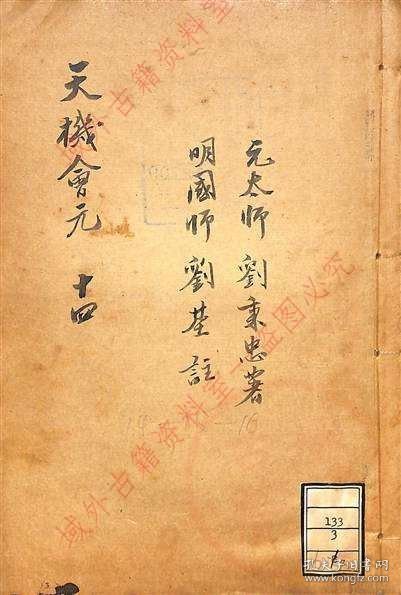 元太师 劉秉忠著
明國師 劉基註
天機會元 十四
域外古籍资料室 盗图必究
域外古籍资料室 盗图必究
133
3
孔夫子旧书网